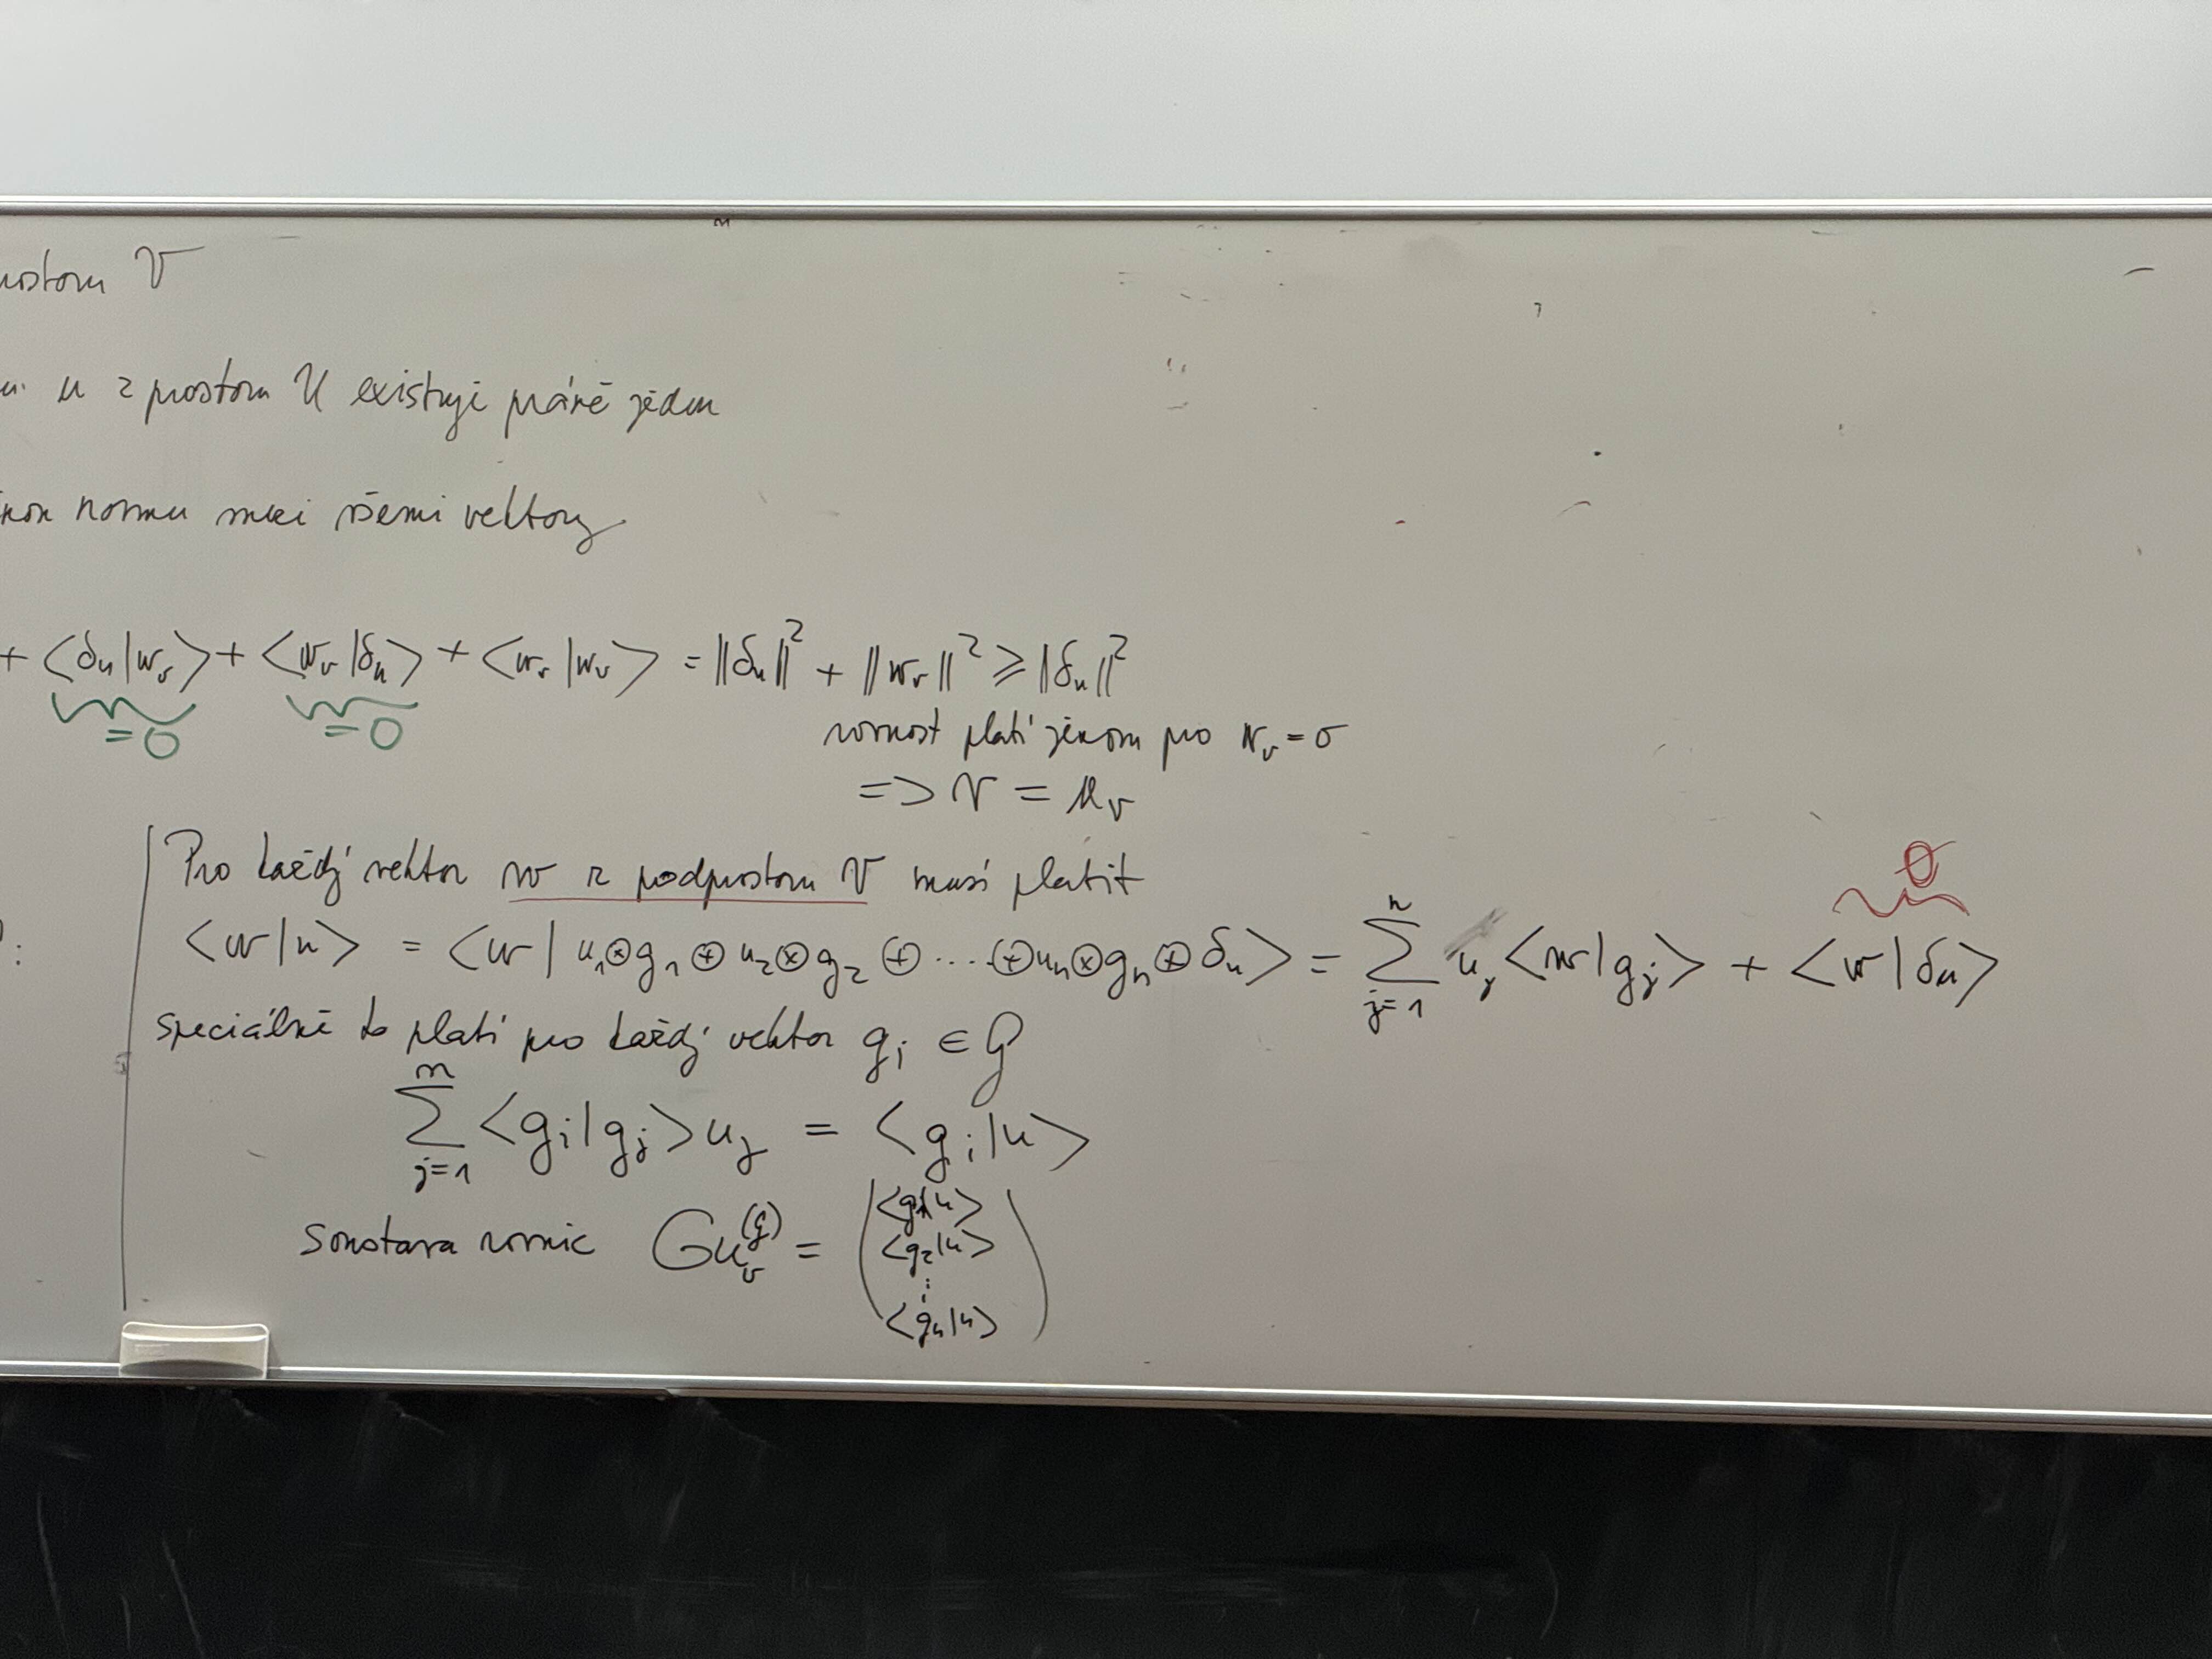 prostoru V
u z prostoru U existuje právě jeden
normu mezi všemi vektory
+ <δ_u|w_v> + <w_v|δ_u> + <w_v|w_v> = ||δ_u||² + ||w_v||² ≥ ||δ_u||²
=0 =0
rovnost platí jenom pro w_v = o
=> v = u_v
Pro každý vektor w z podprostoru V musí platit
<w|u> = <w| u_1⊗g_1 ⊕ u_2⊗g_2 ⊕ ... ⊕ u_n⊗g_n ⊕ δ_u> = Σ_{j=1}^{n} u_j <w|g_j> + <w|δ_u>
0
speciálně to platí pro každý vektor g_i ∈ G
Σ_{j=1}^{n} <g_i|g_j> u_j = <g_i|u>
Soustava rovnic G u_v^(G) = ( <g_1|u>
<g_2|u>
⋮
<g_n|u> )